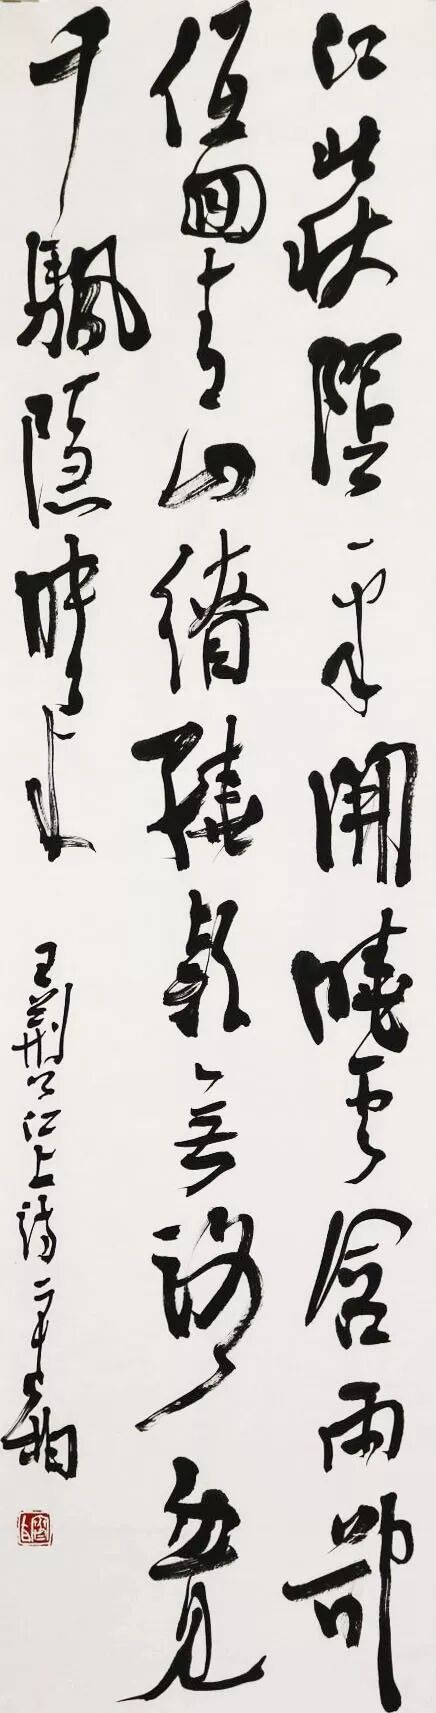 江北秋陰一半開曉雲含雨却
低回青山繚繞疑無路忽見
千颿隱映來
王荊公江上詩